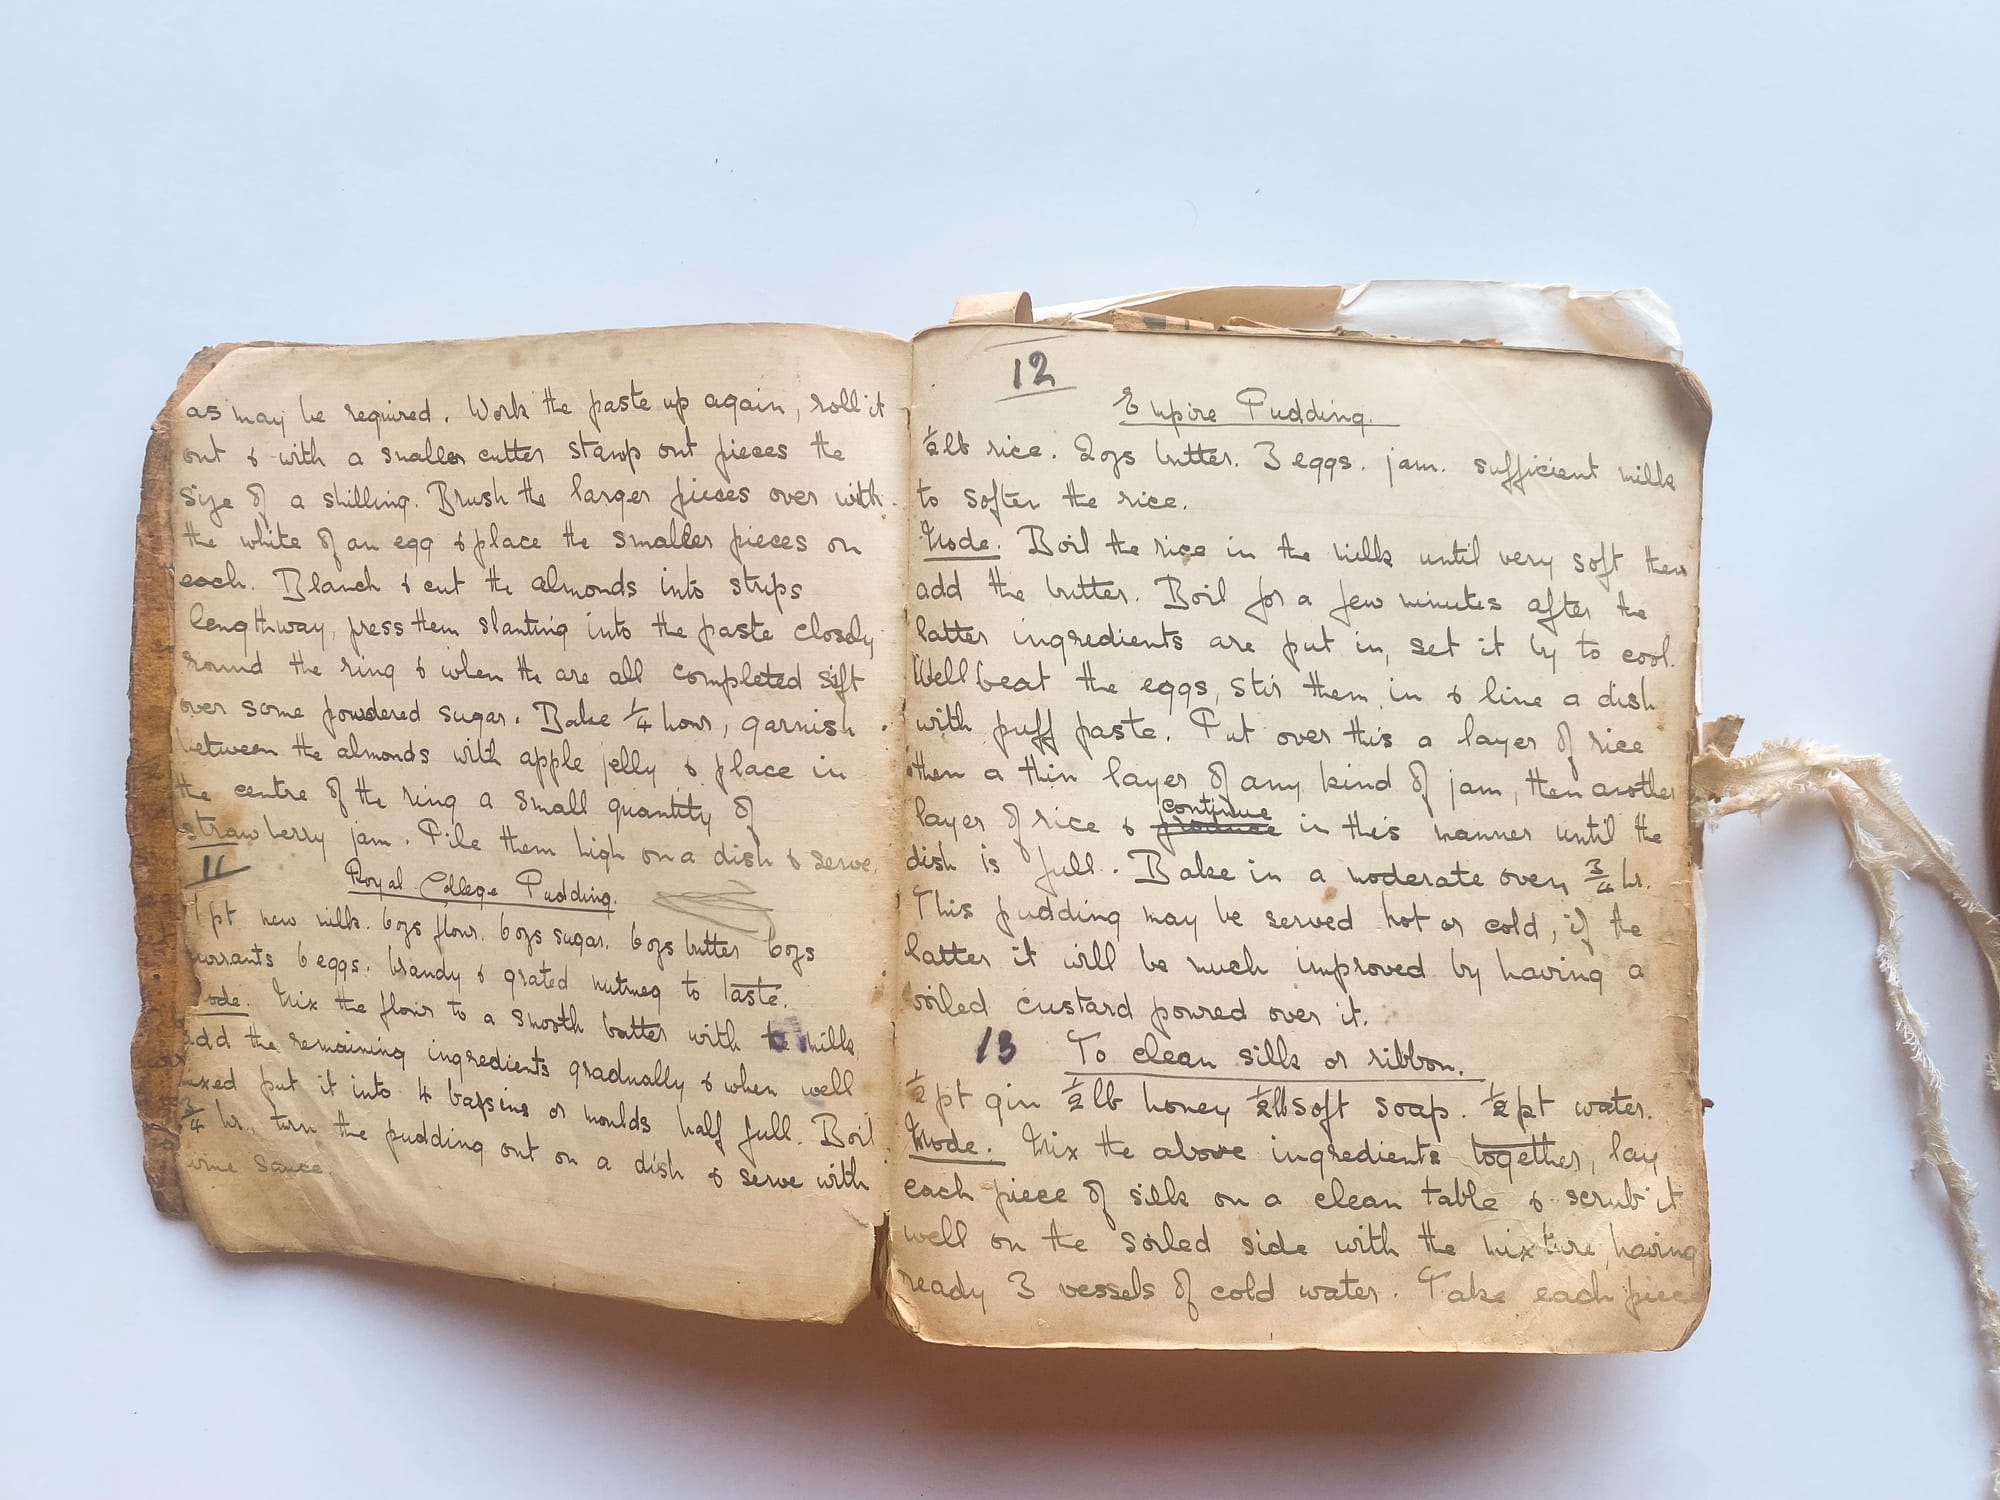 as may be required. Work the paste up again, roll it
out & with a smaller cutter stamp out pieces the
size of a shilling. Brush the larger pieces over with
the white of an egg & place the smaller pieces on
each. Blanch & cut the almonds into strips
lengthway, press them slanting into the paste closely
round the ring & when the are all completed sift
over some powdered sugar. Bake 1/4 hour, garnish
between the almonds with apple jelly & place in
the centre of the ring a small quantity of
strawberry jam. Pile them high on a dish & serve.
11
Royal College Pudding.
1 pt new milk. 6ozs flour. 6ozs sugar. 6ozs butter 6ozs
currants 6 eggs. brandy & grated nutmeg to taste.
Mode. Mix the flour to a smooth batter with the milk
add the remaining ingredients gradually & when well
mixed put it into 4 bassins or moulds half full. Boil
3/4 hr, turn the pudding out on a dish & serve with
wine sauce.
12
Empire Pudding.
1/2 lb rice. 2ozs butter. 3 eggs. jam. sufficient milk
to soften the rice.
Mode. Boil the rice in the milk until very soft then
add the butter. Boil for a few minutes after the
latter ingredients are put in, set it by to cool.
Well beat the eggs, stir them in & line a dish
with puff paste. Put over this a layer of rice
then a thin layer of any kind of jam, then another
layer of rice & continue in this manner until the
dish is full. Bake in a moderate oven 3/4 hr.
This pudding may be served hot or cold, if the
latter it will be much improved by having a
boiled custard poured over it.
13 To clean silk or ribbon.
1/2 pt gin 1/2 lb honey 1/2 lb soft soap. 1/2 pt water.
Mode. Mix the above ingredients together, lay
each piece of silk on a clean table & scrub it
well on the soiled side with the mixture, having
ready 3 vessels of cold water. Take each piece